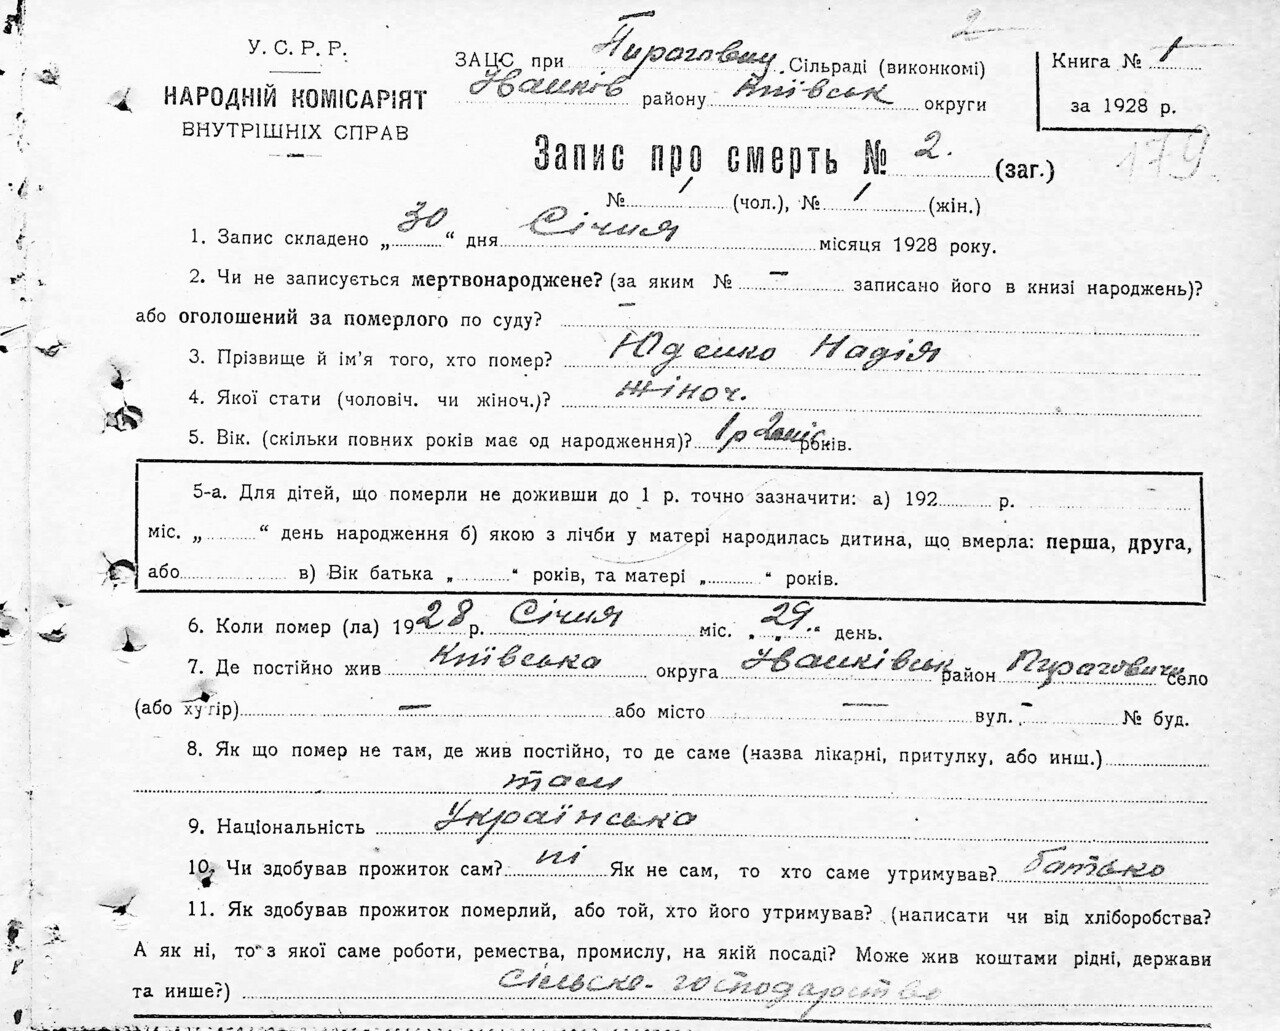 2
У. С. Р. Р.
НАРОДНІЙ КОМІСАРІЯТ
ВНУТРІШНІХ СПРАВ
ЗАЦС при Пироговицькій Сільраді (виконкомі)
Іванків району Київськ округи
Книга № 1
за 1928 р.
179
Запис про смерть № 2. (заг.)
№ 1 (чол.), № 1 (жін.)
1. Запис складено „30“ дня Січня місяця 1928 року.
2. Чи не записується мертвонароджене? (за яким № – записано його в книзі народжень)?
або оголошений за померлого по суду? –
3. Прізвище й ім'я того, хто помер? Юденко Надія
4. Якої стати (чоловіч. чи жіноч.)? жіноч.
5. Вік. (скільки повних років має од народження)? 1 р 2 міс. років.
5-а. Для дітей, що померли не доживши до 1 р. точно зазначити: а) 192 р.
міс. „ “ день народження б) якою з лічби у матері народилась дитина, що вмерла: перша, друга,
або в) Вік батька „ “ років, та матері „ “ років.
6. Коли помер (ла) 1928 р. Січня міс. „29“ день.
7. Де постійно жив Київська округа Іванківськ район Пироговичи село
(або хутір) — або місто — вул. – № буд.
8. Як що помер не там, де жив постійно, то де саме (назва лікарні, притулку, або инш.)
там
9. Національність Українська
10. Чи здобував прожиток сам? ні Як не сам, то хто саме утримував? батько
11. Як здобував прожиток померлий, або той, хто його утримував? (написати чи від хліборобства?
А як ні, то з якої саме роботи, ремества, промислу, на якій посаді? Може жив коштами рідні, держави
та инше?) сільске-господарство